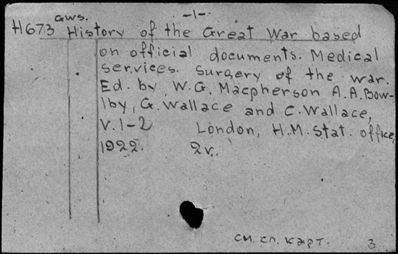 GWS. -1-
H673 History of the Great War based
on official documents. Medical
services. Surgery of the war.
Ed. by W.G. Macpherson A.A. Bow-
lby, G. Wallace and C. Wallace,
V.1-2 London, H.M. Stat. office,
1922. 2v.
см. сл. карт. 3